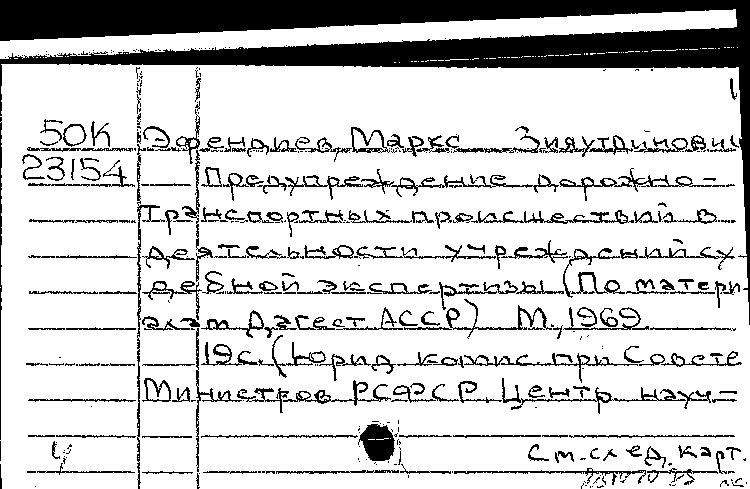 1
50К Эфендиев, Маркс Зияутдинович
23154 Предупреждение дорожно-
транспортных происшествий в
деятельности учреждений су-
дебной экспертизы (По матери-
алам Дагест. АССР) М., 1969.
19с. (Юрид. комис. при Совете
Министров РСФСР. Центр. науч.-
4 См. след. карт.